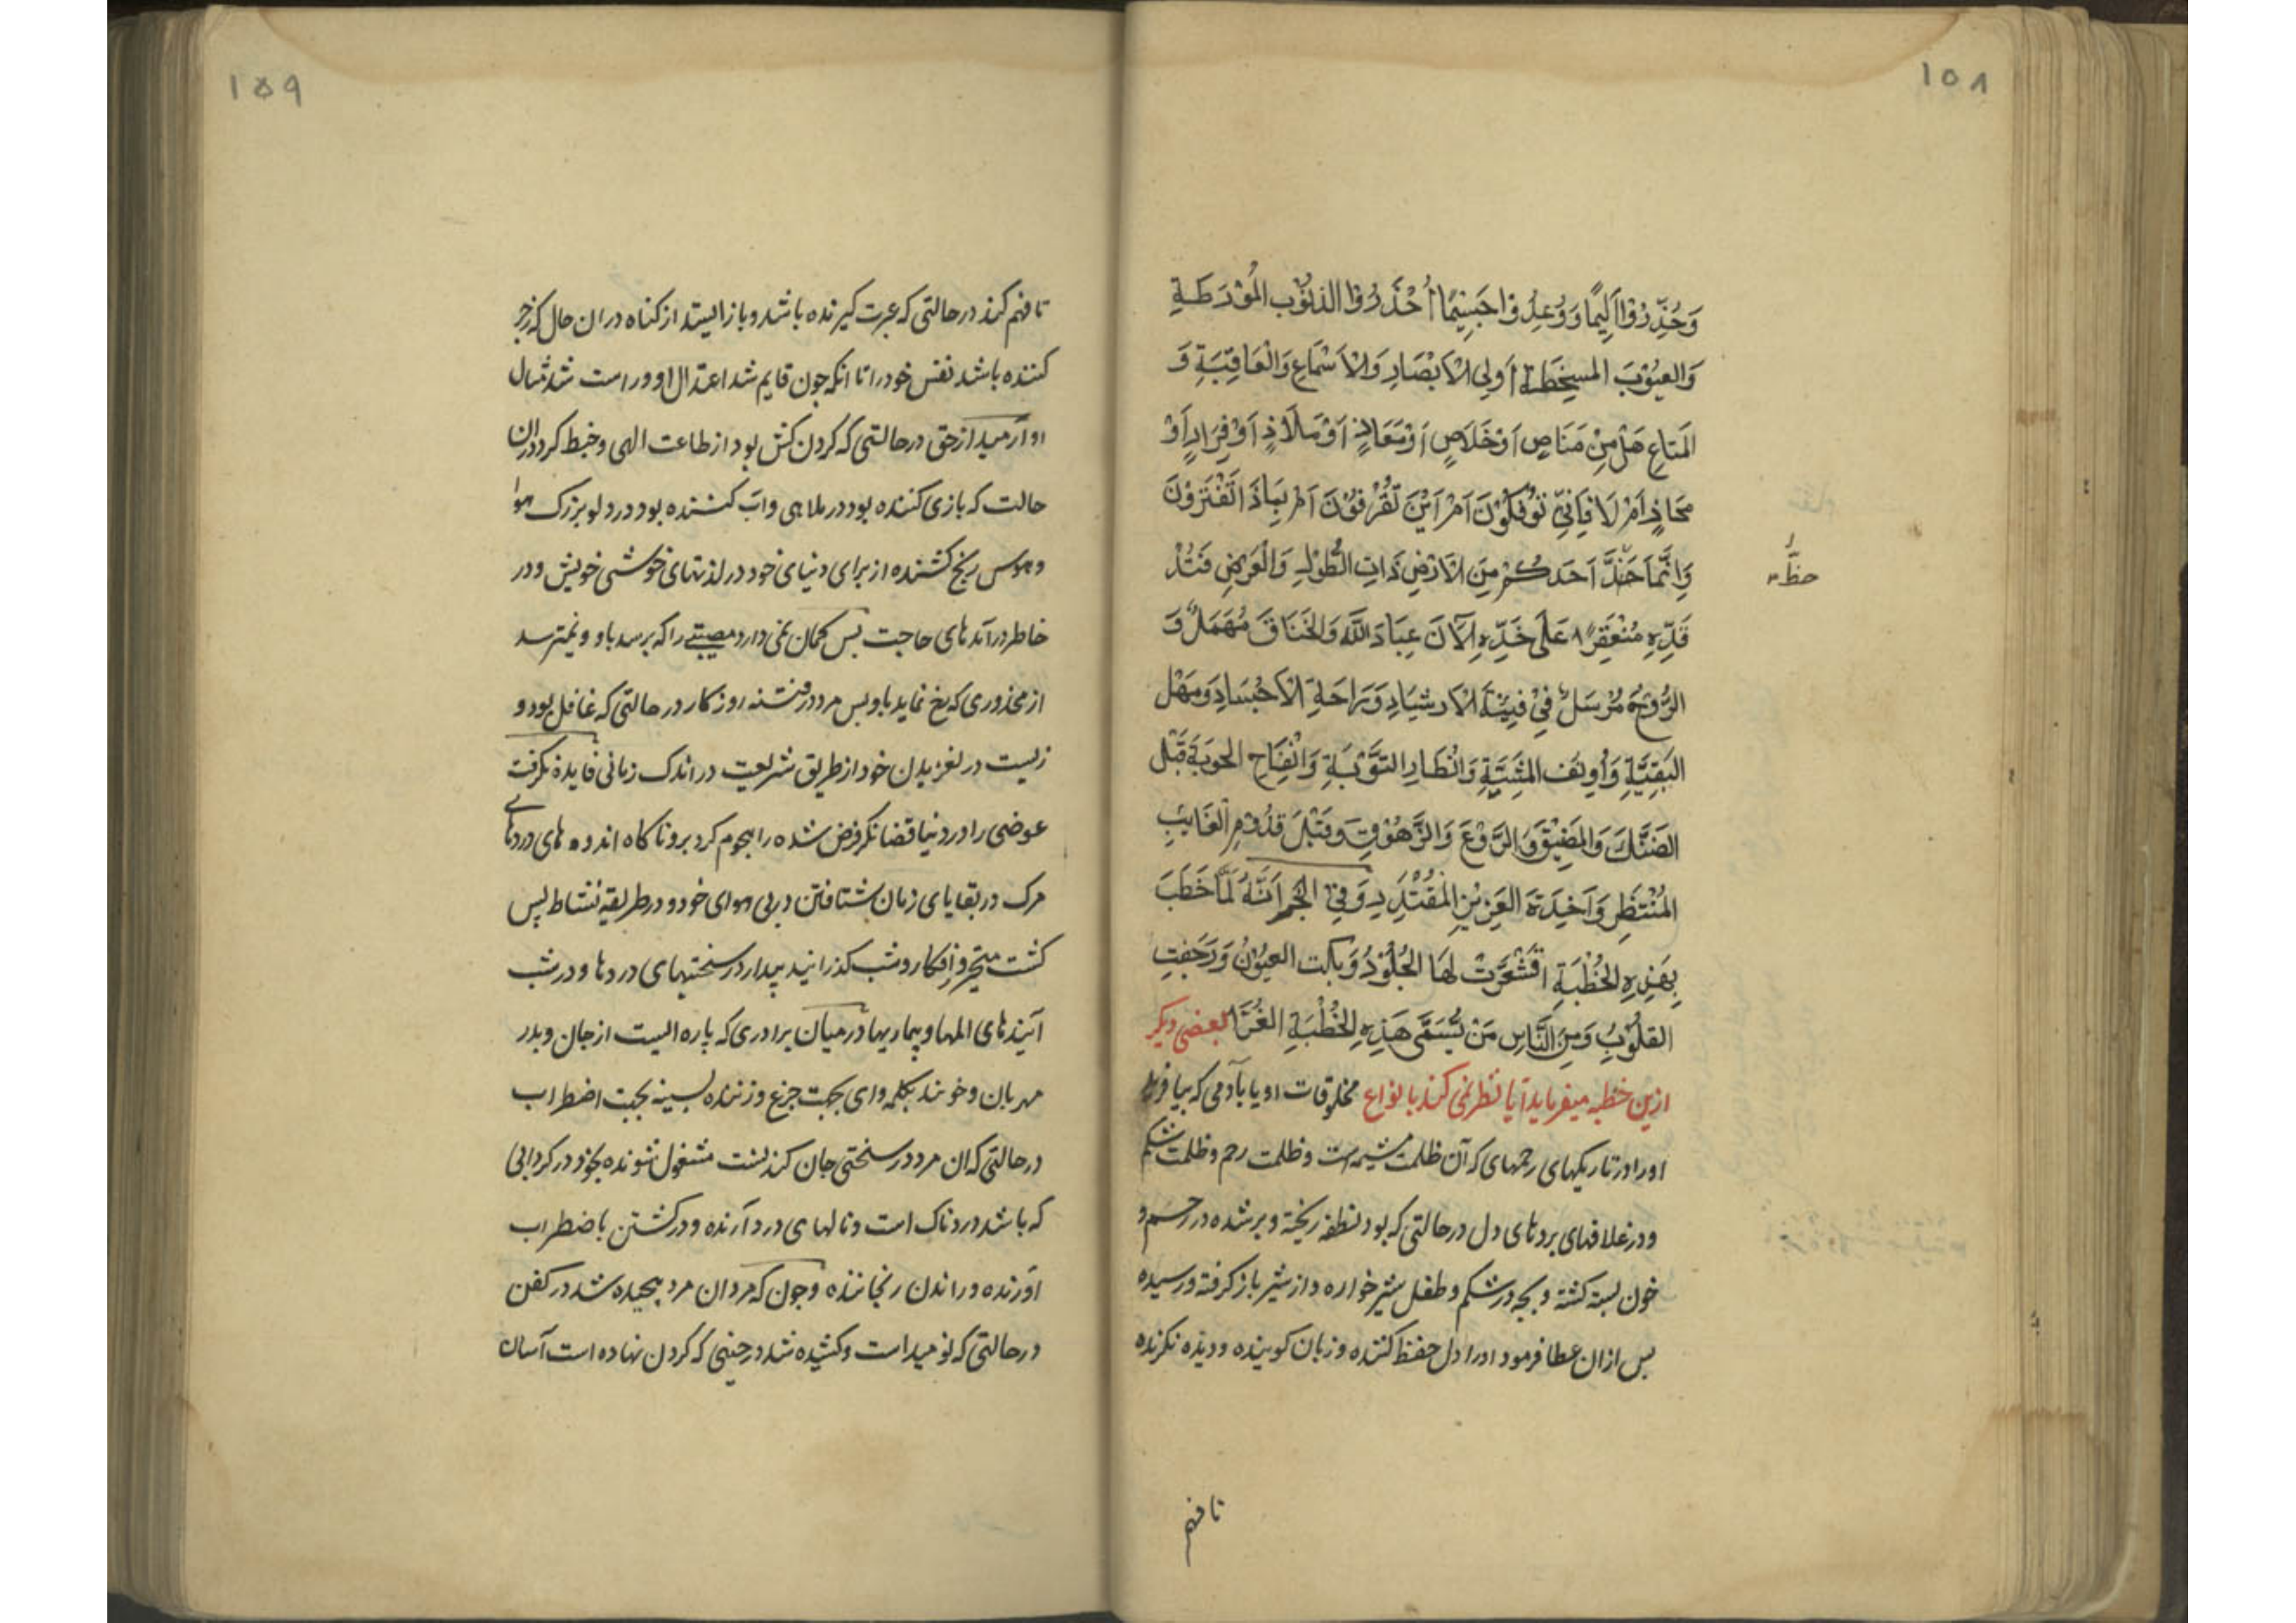 ۱۵۸
وَحُذِّرُوْا اَلِیْمًا وَ وُعِدُوْا جَسِیْمًا اُحْذَرُوْا الذنُوْبَ المُوْرَطَةِ
وَالعیُوْبَ المسخِطَةِ اُولِی الْاَبْصَارِ وَالْاَسْمَاعِ وَالْعَافِیَةِ وَ
المَتاعِ هَلْ مِنْ مَنَاصٍ اَوْخَلَاصٍ اَوْمَعَاذٍ اَوْ مَلَاذٍ اَوْفِرَارٍ اَوْ
مَحَاذٍ اَمْ لَا فَاَنّٰی تُؤْفَكُوْنَ اَمْ اَیْنَ تُصْرَفُوْنَ اَمْ بِمَاذَا تَغْتَرُوْنَ
وَاِنَّمَا حَظُّ اَحَدِكُمْ مِنَ الْاَرْضِ ذَاتِ الطُوْلِ وَالْعَرْضِ
حظّ
قَدِّهِ مُنْعَفِرًا عَلَی خَدِّهِ اَلْآنَ عِبَادَ اللّٰهِ وَالخِنَاقُ مُهْمَلٌ وَ
الرُّوْحُ مُرْسَلٌ فِیْ فَیْنَةِ الْاَرْشَادِ وَ رَاحَةِ الْاَجْسَادِ وَ مَهْلِ
البَقِیَّةِ وَ اُنُفِ المَشِیَّةِ وَ اِنْظَارِ التَّوْبَةِ وَ انْفِسَاحِ الحَوبَةِ قَبْلَ
الضَنْكِ وَالمَضِیْقِ وَ الرَّوْعِ وَ الزُّهُوْقِ وَ قَبْلَ قُدُوْمِ الغَایِبِ
المُنْتَظَرِ وَ اَخِیْذَةِ العَزِیْزِ المُقْتَدِرِ وَ فِی الخَبَرِ اَنَّهُ لَمَّا خَطَبَ
بِهٰذِهِ الخُطْبَةِ اقْشَعَرَّتْ لَهَا الجُلُوْدُ وَ بَكَت العیُوْنُ وَ رَجَفَتِ
القُلُوْبُ وَ مِنَ النَّاسِ مَنْ یُّسَمّٰی هٰذِهِ الخُطْبَةِ الغُرَّا بعضی دیكر
ازین خطبه میفرماید آیا نظر نمی كند بانواع مخلوقات او یا بآدمی كه بیافرید
اورا در تاریكهای رحمهای كه آن ظلمت مشیمه است و ظلمت رحم و ظلمت شكم
و در غلافهای بردهای دل در حالتی كه بود نطفه ریخته و برشده در رحم و
خون بسته كشته و بچه در شكم و طفل شیر خواره و از شیر باز كرفته و رسیده
بس ازان عطا فرمود اورا دل حفظ كننده و زبان كوینده و دیده نكرنده
تا فهم
۱۵۹
تا فهم كند در حالتی كه عبرت كیرنده باشد و باز ایستد از كناه در ان حال كه زجر
كننده باشد نفس خود را تا انكه چون قایم شد اعتدال او و راست شد تمثال
او آرمید از حق در حالتی كه كردن كش بود از طاعت الهی و خبط كرد دران
حالت كه بازی كننده بود در ملاهی و آب كشنده بود در دلو بزرك هوا
و هوس رنج كشنده از برای دنیای خود در لذتهای خوشی خویش و در
خاطر درآمدهای حاجت بس كمان نمی دارد مصیبتی را كه برسد باو و نمیترسد
از محذوری كه رخ نماید باو بس مرد در فتنه روزكار در حالتی كه غافل بود و
زیست در لغزیدن خود از طریق شریعت در اندك زمانی فایده نكرفت
عوضی را در دنیا قضا نكرد فرض شده را هجوم كرد برو ناكاه اندوه های دردهای
مرك در بقایای زمان شتافتن در پی هوای خود و در طریقه نشاط پس
كشت متحیر و افكار و شب كذرانید بیدار در سختیهای دردها و در شب
آیندهای المها و بیماریها در میان برادری كه پاره ایست از جان و پدر
مهربان و خوانند بكلمه وای بجهت جزع و زننده بسینه بجهت اضطراب
در حالتی كه ان مرد در سختی جان كندنست مشغول شونده بخود در كردابی
كه باشد دردناك است و نالهای درد آرنده و دركشتن باضطراب
آورنده و راندن رنجاننده و چون كه مرد ان مرد پیچیده شد در كفن
در حالتی كه نومید است و كشیده شد در حینی كه كردن نهاده است آسان